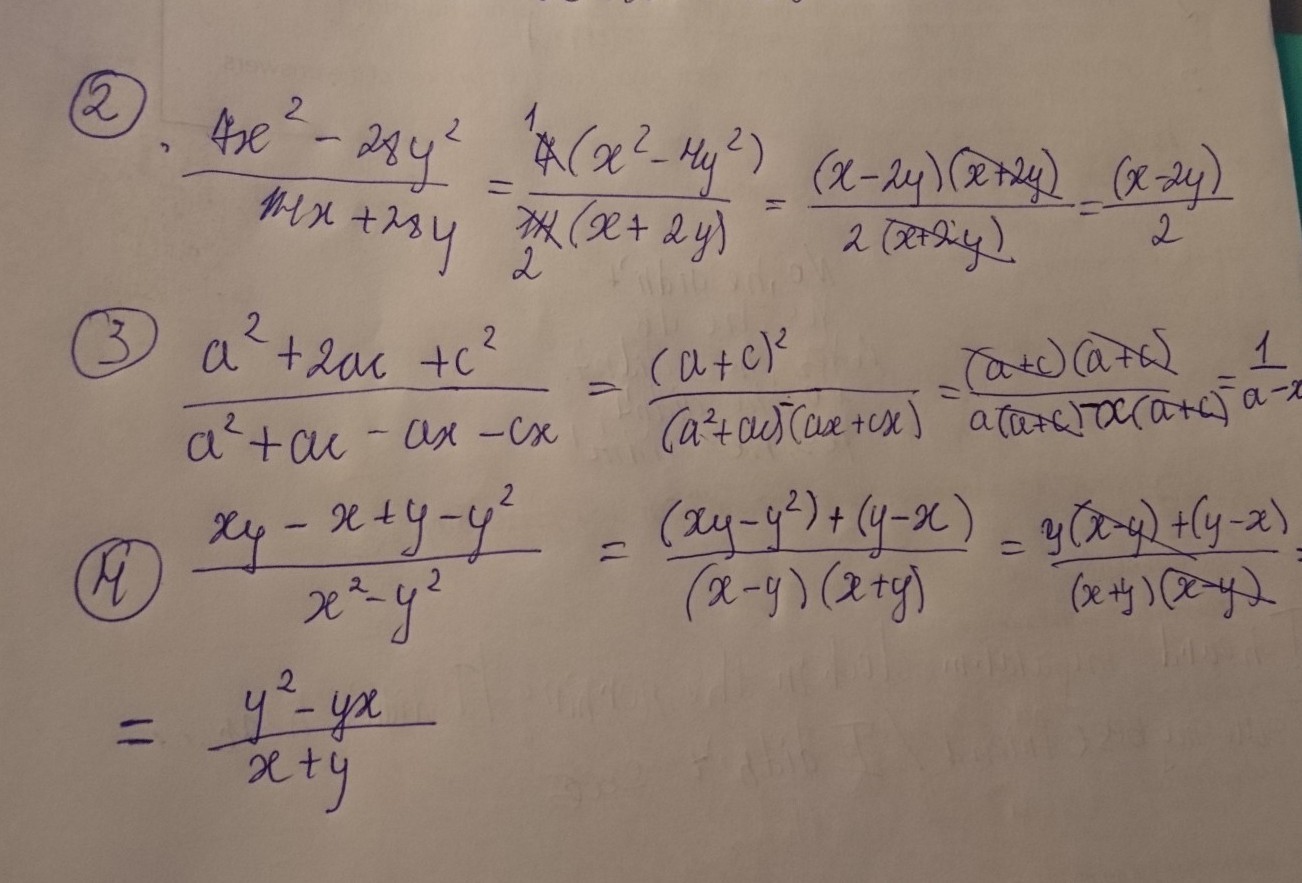 ② . 7x² - 28y² / 14x + 28y = 7(x² - 4y²) 1 / 14(x + 2y) 2 = (x - 2y)(x + 2y) / 2(x + 2y) = (x - 2y) / 2
③ a² + 2ac + c² / a² + ac - ax - cx = (a + c)² / (a² + ac) - (ax + cx) = (a + c)(a + c) / a(a + c) - x(a + c) = 1 / a - x
④ xy - x + y - y² / x² - y² = (xy - y²) + (y - x) / (x - y)(x + y) = y(x - y) + (y - x) / (x + y)(x - y) =
= y² - yx / x + y